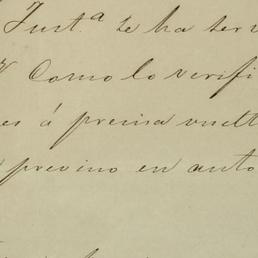 Just.ª te ha ser
Como lo verifi
es á precisa vuelt
previno en auto